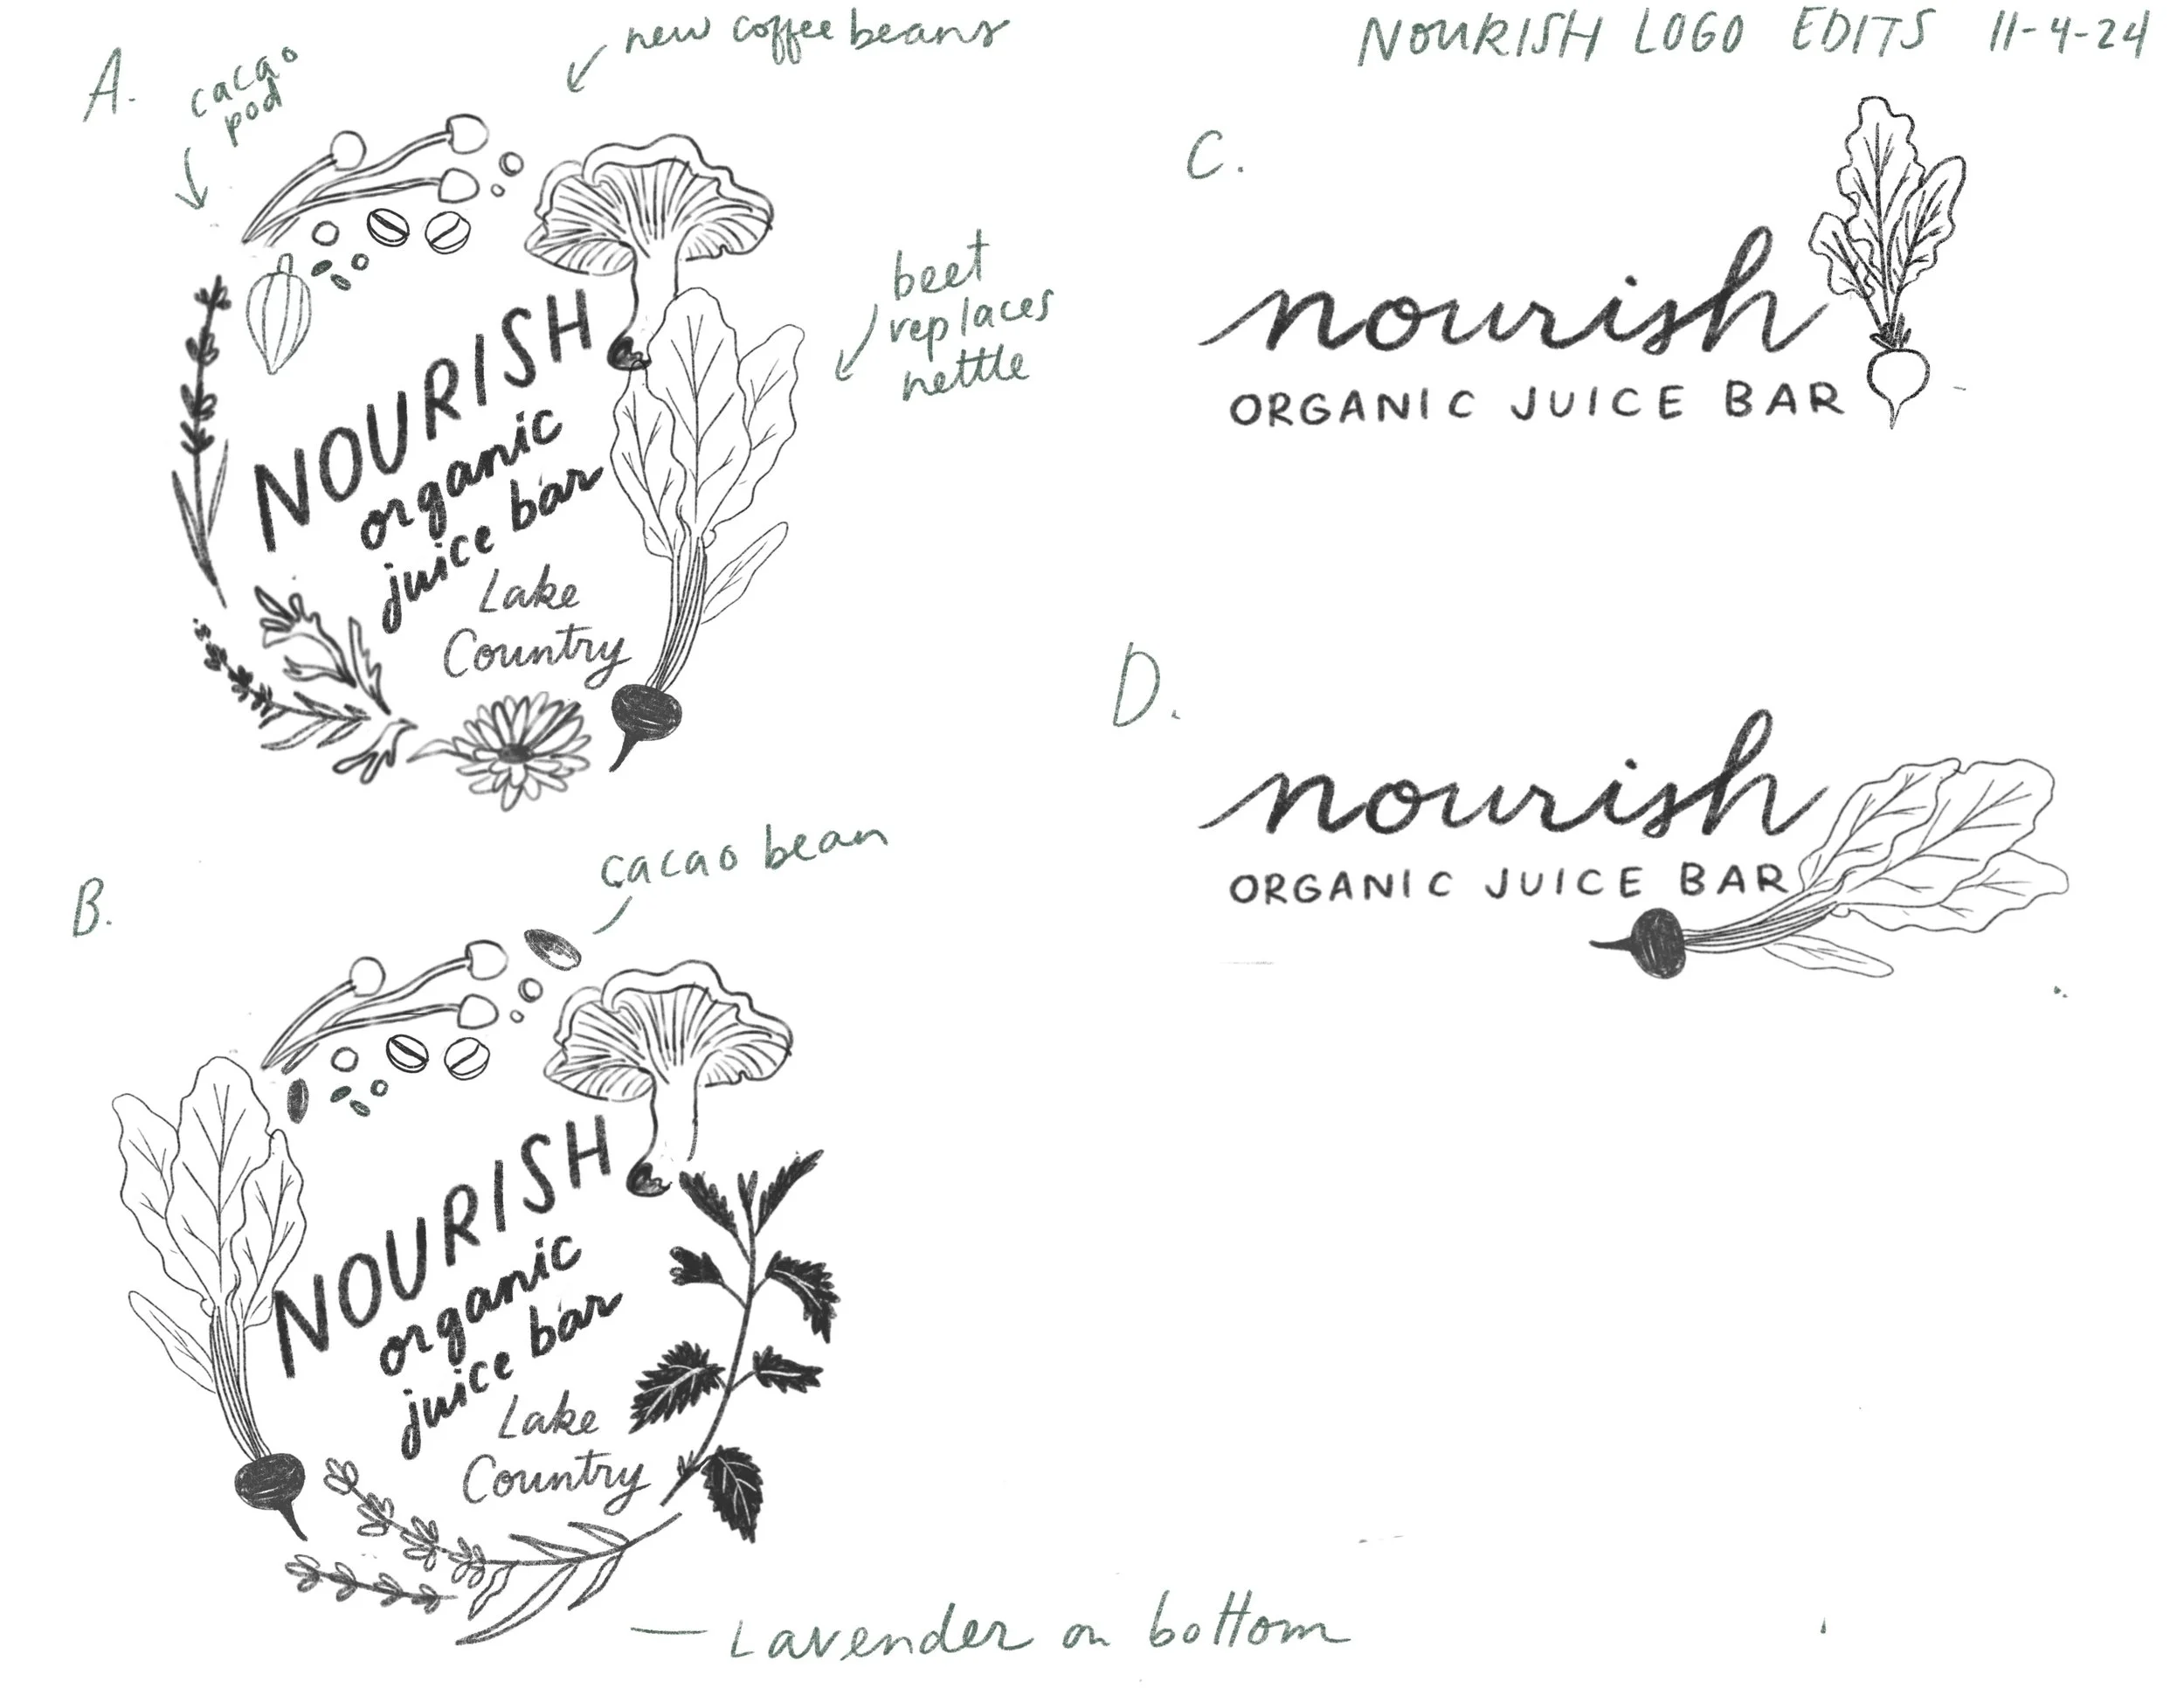 NOURISH LOGO EDITS 11-4-24
A.
cacao
pod
new coffee beans
beet
replaces
nettle
NOURISH
organic
juice bar
Lake
Country
B.
cacao bean
NOURISH
organic
juice bar
Lake
Country
Lavender on bottom
C.
nourish
ORGANIC JUICE BAR
D.
nourish
ORGANIC JUICE BAR